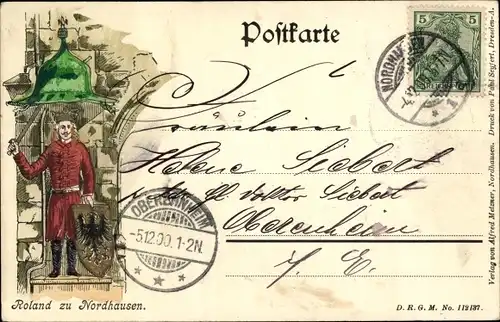 Postkarte
5 5
NORDHAUSEN
1
Fräulein
Helene Siebert
Doktor Siebert
Oberenheim
i/E.
OBEREHNHEIM
-5.12.00.1-2N.
* * *
Roland zu Nordhausen.
D. R. G. M. No. 112137.
Verlag von Alfred Metzner, Nordhausen. Druck von Paul Seyfert, Dresden-A.